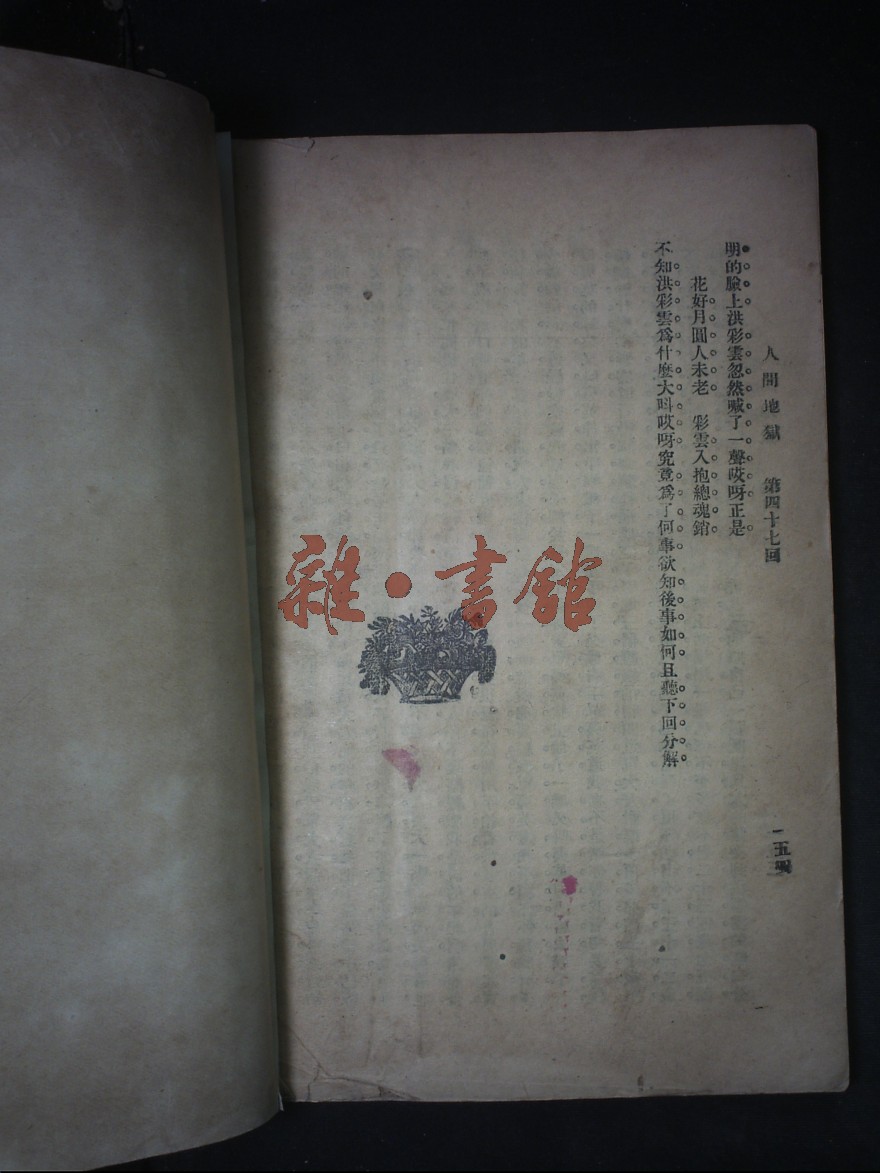 人間地獄　第四十七回
明的臉上洪彩雲忽然喊了一聲哎呀正是
花好月圓人未老　彩雲入抱總魂銷
不知洪彩雲爲什麼大呌哎呀究竟爲了何事欲知後事如何且聽下回分解
雜·書館